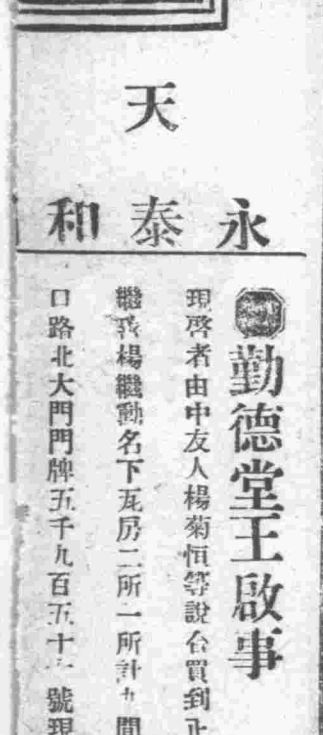 天
永泰和
勤德堂王啟事
現啓者由中友人楊菊恒等說合買到正
繼義楊繼勳名下瓦房二所一所計九間
口路北大門門牌五千九百五十號現